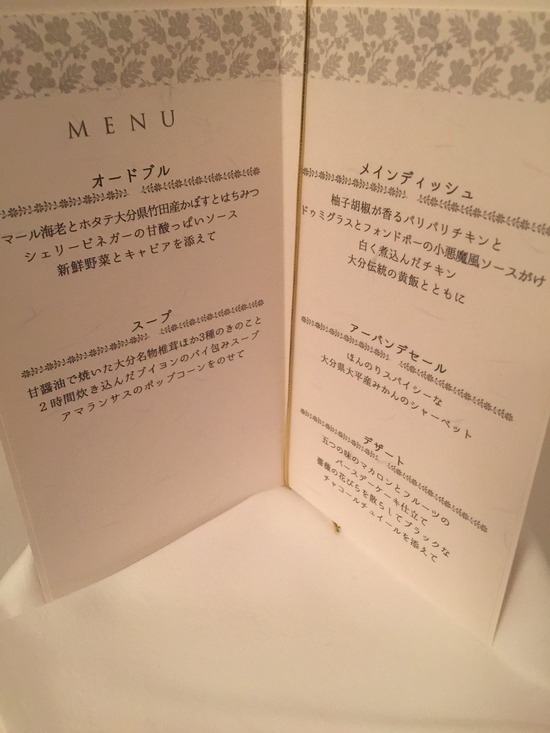 MENU
オードブル
マール海老とホタテ大分県竹田産かぼすとはちみつ
シェリービネガーの甘酸っぱいソース
新鮮野菜とキャビアを添えて
スープ
甘醤油で焼いた大分名物椎茸ほか3種のきのこと
2時間炊き込んだブイヨンのパイ包みスープ
アマランサスのポップコーンをのせて
メインディッシュ
柚子胡椒が香るパリパリチキンと
ドゥミグラスとフォンドボーの小悪魔風ソースがけ
白く煮込んだチキン
大分伝統の黄飯とともに
アーバンデセール
ほんのりスパイシーな
大分県大平産みかんのシャーベット
デザート
五つの味のマカロンとフルーツの
バースデーケーキ仕立て
薔薇の花びらを散らしてブラックな
チャコールチュイールを添えて